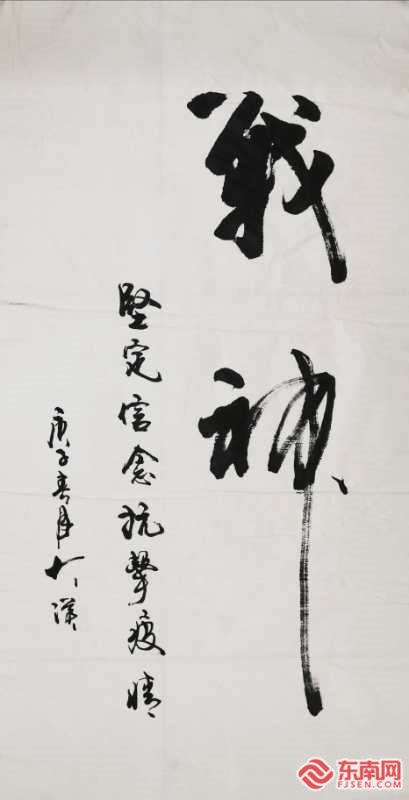 戰神
堅定信念抗擊疫情
庚子春月
东南网
FJSEN.COM